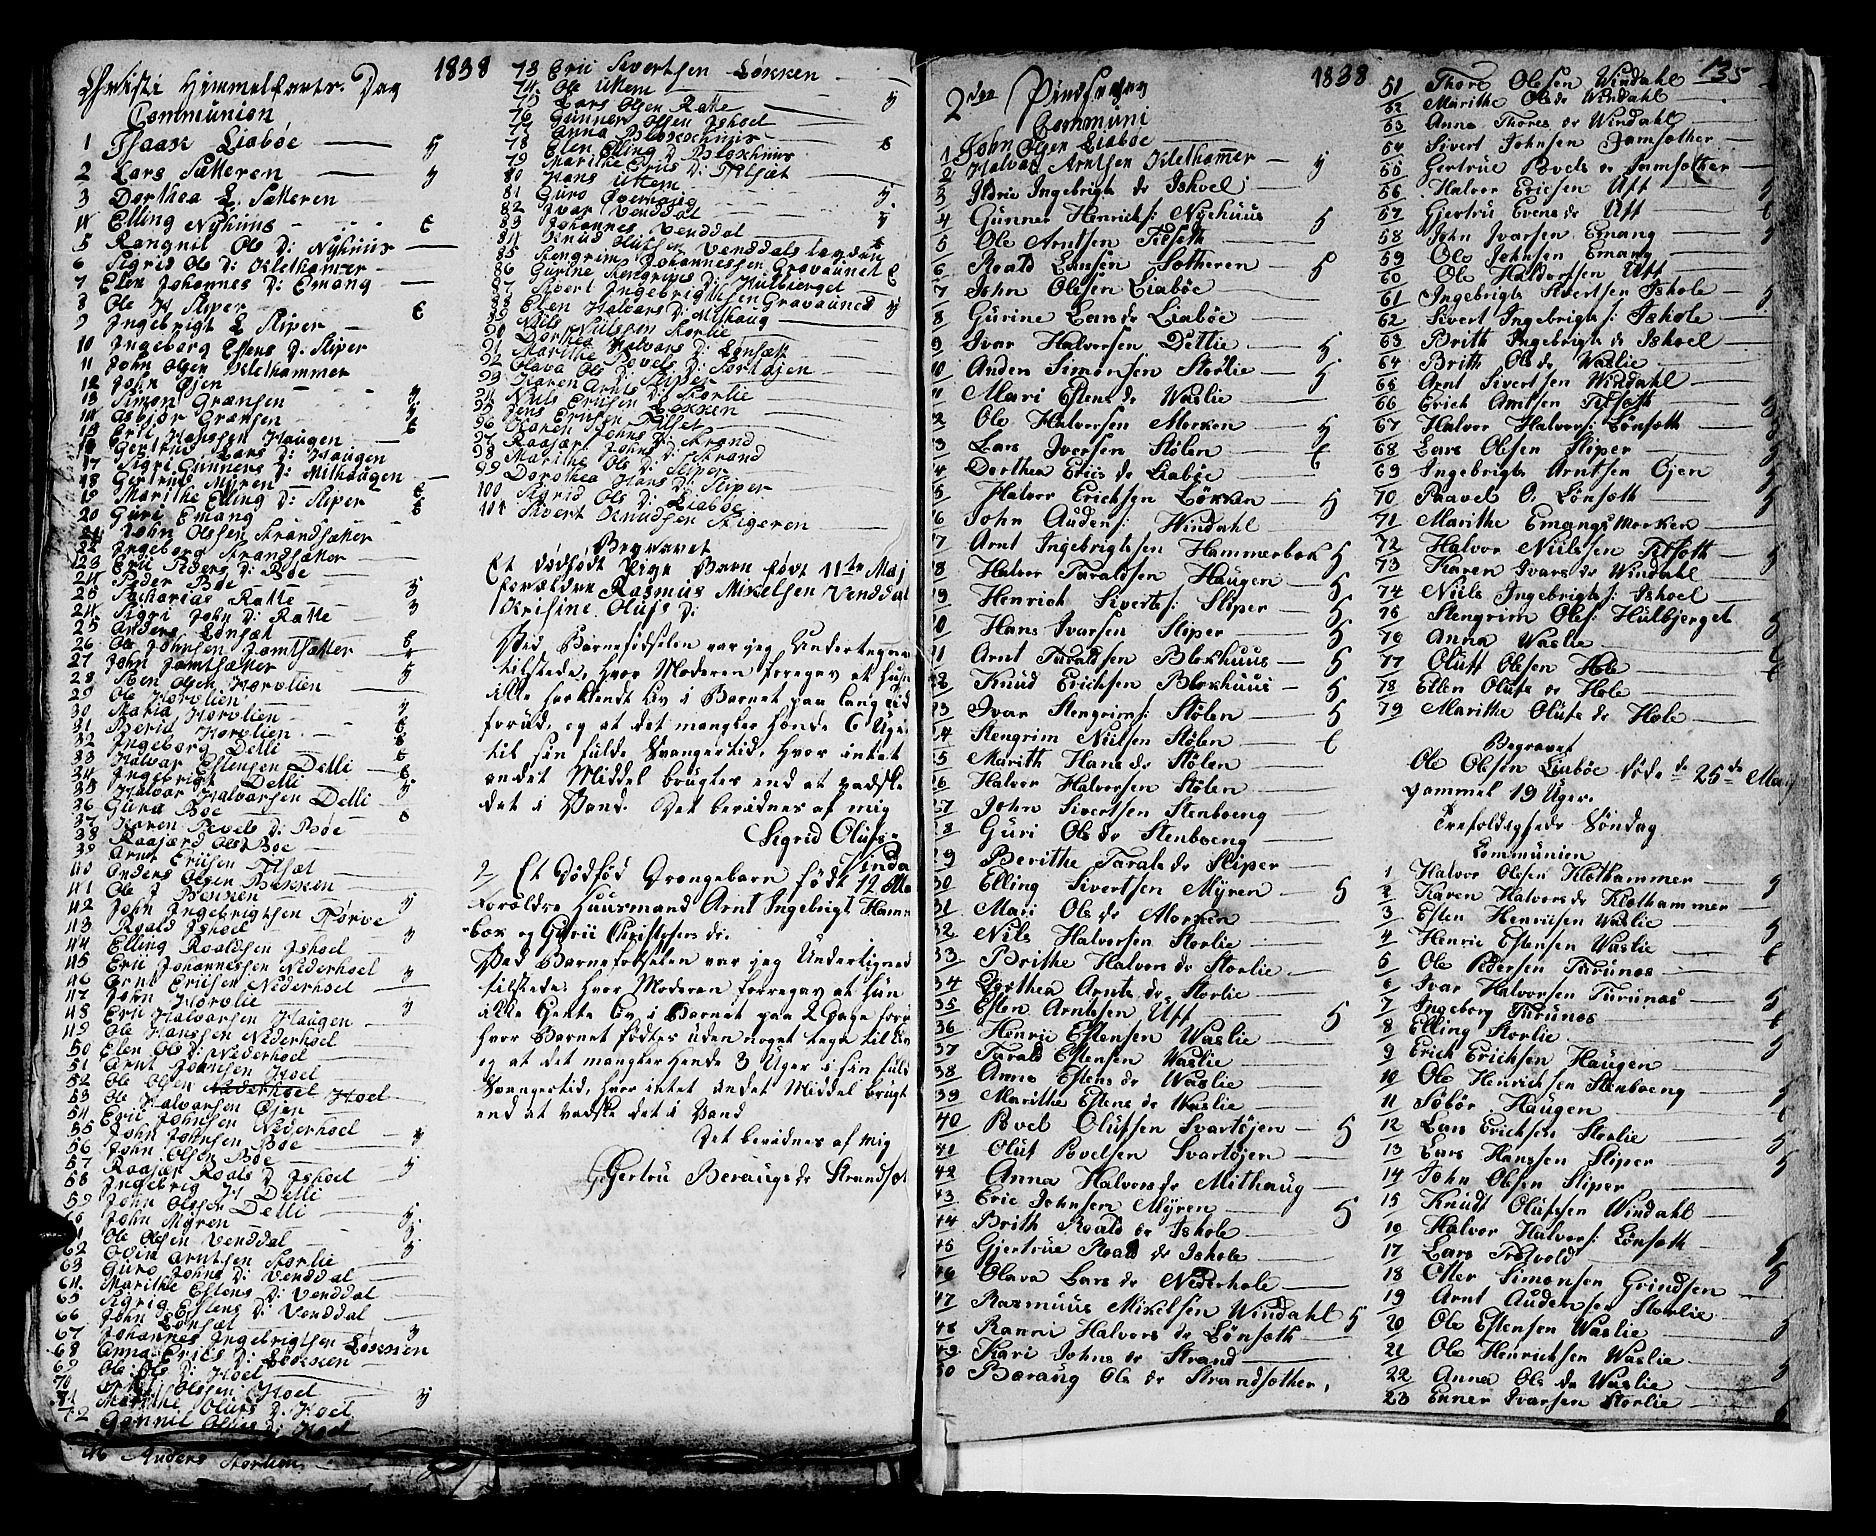 Christi Himmelfarts Dag 1838
Communion
1 Isaak Liabøe y
2 Lars Sætteren y
3 Dorthea L. Sætteren
4 Elling Nyhuus t
5 Rangnil Ols D: Nyhuus
6 Sigrid Ols D: Klethamer
7 Elen Johannes D: Emang
8 Ole H Sliper t
9 Ingebrigt E Sliper
10 Ingeborg Estens D: Sliper
11 John Olsen Klethammer
12 John Øjen
13 Simon Grænsen y
14 Asbjør Grænsen y
15 Eric Hanssen Haugen t
16 Gertrud Lars D: Haugen
17 Sigri Gunners D: Milhaugen
18 Gertrud Myren
19 Marithe Elling D: Sliper t
20 Guri Emang t
21 John Olssen Strandsæter
22 Ingeborg Strandsæter
23 Eric Peders D: Bøe
24 Peder Bøe
25 Zacharias Ratte y
24 Sigri John D: Ratte y
25 Anders Lønsæt
26 Ole Johnsen Jamtsætter t
27 John Jamtsætter
28 Sten Olsen Horvlien y
29 Ole Horvlien
30 Matia Horvlien y
31 Berit Horvlien t
32 Ingeborg Delli t
33 Halvar Estensen Delli t
34 Ingebrigt Delli t
35 Halvar Halvarsen Delli y
36 Gura Bøe
37 Karen Povels D: Bøe t
38 Raajærd Ols Bøe
39 Arnt Ericsen Tilsæt
40 Anders Olsen Bekken
41 Ole D Bekken
42 John Ingebrigtsen Børve y
43 Roald Ishoel
44 Elling Roaldsen Ishoel y
45 Eric Johannessen Nederhoel
46 Arnt Ericsen Nederhoel y
47 John Horvlie
48 Eric Halvarsen Haugen y
49 Ole Hanssen Nederhoel
50 Elen Ols D: Nederhoel
51 Arnt Johnsen Hoel
52 Ole Olsen Nederhoel Hoel
53 Ole Halvarsen Øsen
54 Eric Johnsen Nederhoel
55 John Johnsen Bøe
56 John Olsen Bøe y
57 Raajær Roals D: Ishoel y
58 Ingebrig H Delli
59 John Olssen Delli
60 John Myren y
61 Ole Olssen Venddal y
62 Odin Arntsen Storlie y
63 Guro Johns D: Venddal
64 Marithe Estens D: Venddal
65 Sigrig Estens D: Venddal
66 John Lønsæt
67 Johannes Ingebrigtsen Løkken y
68 Anna Erics D: Løkken
69 Ole Ols D: Hoel
70 Olssen Hoel
71 Marithe Olufs D: Hoel y
72 Gonnil Olufs D: Hoel
Anders Storlien
73 Eric Sivertsen Løkken
74 Ole Uttem y
75 Lars Olsen Ratte
76 Gunner Olsen Ishoel
77 Anna Blokschuus t
78 Elen Elling D: Blokhuus
79 Marithe Erics D: Tilsæt
80 Hans Uttem
81 Guro Overhaug y
82 Ivar Venddal
83 Johannes Venddal y
84 Knud Olufsen Venddalsløkken t
85 Stengrim Johannessen Gravaunet t
86 Gurine Stengrims D: Hulbjerget
87 Sivert Ingebrigtssen Gravauned y
88 Elen Halvars D: Milhaug
89 Niils Niilssen Storlie
90 Dorthea Halvars D: Lønsætt
91 Marithe Povels D: Sortøjen
92 Olava Ols D: Sliper
93 Karen Arnts D: Storlie
94 Niils Ericsen Løkken
95 Jens Ericsen Tilset
96 Karen Johns D: Strand
97 Raajær Johns D: Strand
98 Marithe Ols D: Sliper
99 Dorothea Hans D: Sliper
100 Sigrid Ols D: Liabøe
101 Sivert Knudssen Stigeren
Begravet
Et dødfødt Pige Barn født 11te Maj
Forældre Rasmus Mikelsen Venddal
Krisine Olufs D:
Ved Barnefødselen var jeg Undertegne
tilstede, hvor Moderen foregav at hun
ikke havde kendt Liv i Barnet paa lang tid
forud, og at det mangler hende 6 Uger
til sin fulde Svangertid, hvor intet
andet Middel brugtes end at vadske
det i Vand. Det bevidnes af mig
Sigrid Olufs
Vinda
2 Et Dødfød Drængebarn født 12 Ma
Forældre Huusmand Arnt Ingebrigt Hamm
box og Guru Christofers dr.
Ved Barnefødselen var jeg Undertigned
tilstede, hvor Moderen foregav at hun
ikke kjente Liv i Barnet paa 2 Dage før
hvor Barnet fødtes uden noget tegn til Liv
og at det mangler hende 3 Uger i sin fuld
Svangertid, hvor intet andet Middel brugt
end at vadske det i Vand
Det bevidnes af mig
Gertru Beraugs dr Strandsæt
2den Pindsedag 1838 135
Communi
1 John Olsen Liabøe
2 Halvor Arntsen Klethammer y
3 Ildri Ingebrigts dr Ishoel
4 Gunner Henrichs: Nyehuus 5
5 Ole Arntsen Tilseth
6 Roald Larsen Sætheren 5
7 John Olesen Liabøe
8 Gurine Lars dr Liabøe
9 Ivar Halvorsen Dettlie 5
10 Anders Simonsen Storlie 5
11 Mari Estens dr Waslie
2 Ole Halvorsen Morken 5
3 Lars Iversen Stølen t
4 Dorthea Erics dr Liabøe t
5 Halvor Erichsen Løkken 5
6 John Audens: Windahl
7 Arnt Ingebrigtsen Hammerbok 5
8 Halvor Taraldsen Haugen 5
19 Henrich Siverts: Sliper 5
20 Hans Ivarsen Sliper 5
21 Arnt Taraldsen Blokhuus 5
22 Knud Erichsen Blokhuus 5
23 Ivar Stengrims: Stølen 5
24 Stengrim Niilsen Stølen t
25 Marith Hans dr Stølen
26 Halvor Halvorsen Stølen
27 John Sivertsen Stenboeng
28 Guri Ols dr Stenboeng
29 Berithe Taralds dr Sliper
30 Elling Sivertsen Myren 5
31 Mari Ols dr Morken
32 Nils Halvorsen Storlie
33 Brithe Halvors dr Storlie
34 Dorthea Arnts dr Storlie
35 Esten Arntsen Uft 5
36 Henric Estensen Waslie
37 Tarald Estensen Waslie
38 Anne Estens dr Waslie
39 Marithe Estens dr Waslie
40 Povel Olufsen Svartøjen 5
41 Oluf Povelsen Svartøjen
42 Anna Halvors dr Mithaug
43 Eric Johnsen Myren 5
44 Brith Roald dr Ishole
45 Gjertrue Roald dr Ishole
46 Olava Lars dr Nederhole
47 Rasmuus Mikelsen Windahl 5
48 Ranni Halvors dr Lønsæth
49 Kari Johns dr Strand
50 Beraug Ols dr Strandsæther
51 Thore Olesen Windahl
52 Marithe Ols dr Windahl
53 Anna Thores dr Windahl
54 Sivert Johnsen Jamsæther
55 Gertrue Povels dr Jamsæther
56 Halvor Ericsen Uft 5
57 Gjertru Evens dr Uft t
58 John Ivarsen Emang 5
59 Ole Johnsen Emang
60 Ole Haldorsen Uft
61 Ingebrigt Sivertsen Ishole 5
62 Sivert Ingebrigts: Ishole
63 Brith Ingebrigts dr Ishoel
64 Brith Ols dr Waslie
65 Arnt Sivertsen Windahl
66 Erich Arntsen Tilseth 5
67 Halvor Halvors: Lønseth
68 Lars Olesen Sliper 5
69 Ingebrigt Arntsen Øjen 5
70 Paavel O. Lønseth 5
71 Marithe Emangs Morken
72 Halvor Niilssen Tilseth 5
73 Karen Ivars dr Windahl
74 Niils Ingebrigts: Ishoel
75 Stengrim Oles: Hulbjerget 5
76 Anna Waslie t
77 Oluff Olesen Hole t
78 Ellen Olufs dr Hole
79 Marithe Olufs dr Hole
Begravet
Ole Olesen Liabøe døde d 25de May
gammel 19 Uger.
Trefoldigheds Søndag
Communion
1 Halvor Olesen Klethammer 5
2 Karen Halvors dr Klethammer
3 Esten Henricsen Waslie 5
4 Henric Estensen Waslie t
5 Ole Pedersen Turunæs
6 Ivar Halvorsen Turunæs 5
7 Ingeborg Turunæs t
8 Elling Storlie 5
9 Erich Erichsen Haugen
10 Ole Henrichsen Stenboeng 5
11 Sobør Haugen t
12 Lars Erichsen Storlie 5
13 Lars Hanssen Sliper 5
14 John Olesen Sliper
15 Knudt Olufssen Windahl
16 Halvor Halvors: Lønseth
17 Lars Trøsvold 5
18 Otter Simonsen Grindsen 5
19 Arnt Audensen Storlie
20 Ole Estensen Waslie 5
21 Ole Henrichsen Waslie
22 Anna Ols dr Waslie 5
23 Enner Ivarsen Storlie 5